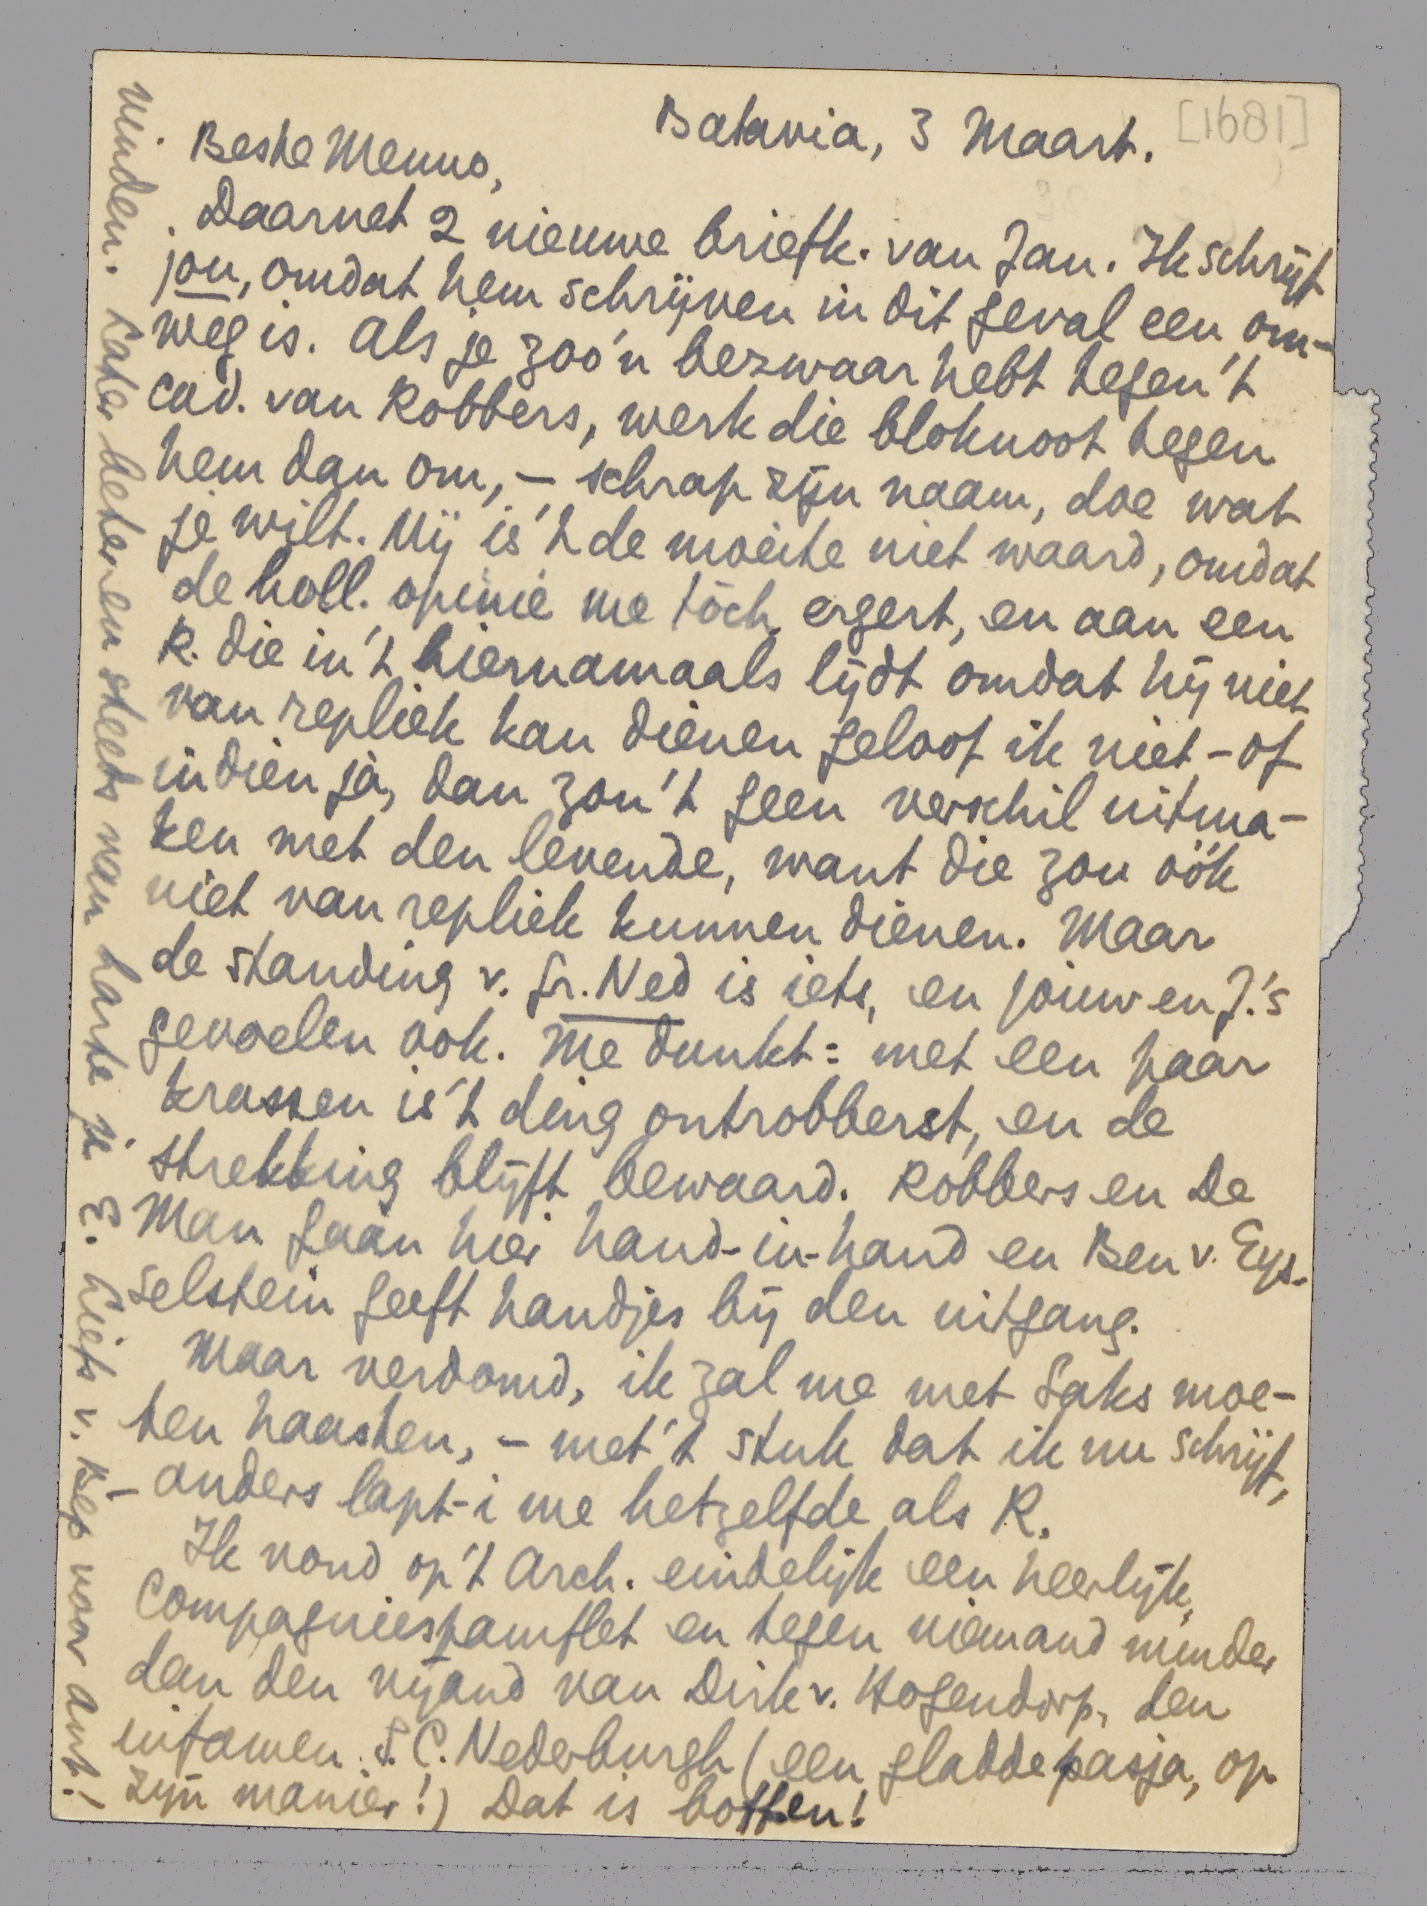 Batavia, 3 Maart.
[1681]
Beste Menno,
Daarnet 2 nieuwe briefk. van Jan. Ik schrijf
jou, omdat hem schrijven in dit geval een om-
weg is. Als je zoo'n bezwaar hebt tegen 't
cad. van Robbers, werk die bloknoot tegen
hem dan om, – schrap zijn naam, doe wat
je wilt. Mij is 't de moeite niet waard, omdat
de holl. opinie me tòch ergert, en aan een
R. die in 't hiernamaals lijdt omdat hij niet
van repliek kan dienen geloof ik niet – of
indien jà, dan zou 't geen verschil uitma-
ken met den levende, want die zou óók
niet van repliek kunnen dienen. Maar
de standing v. Gr. Ned is iets, en jouw en J.'s
gevoelen ook. Me dunkt: met een paar
krassen is 't ding ontrobberst, en de
strekking blijft bewaard. Robbers en De
Man gaan hier hand-in-hand en Ben v. Eys-
selstein geeft handjes bij den uitgang.
Maar verdomd, ik zal me met Saks moe-
ten haasten, – met 't stuk dat ik nu schrijf,
– anders lapt-i me hetzelfde als R.
Ik vond op 't Arch. eindelijk een heerlijk
Compagniespamflet en tegen niemand minder
dan den vijand van Dirk v. Hogendorp, den
infamen S.C. Nederburgh (een gladde pasja, op
zijn manier!) Dat is boffen!
vinden. Later beter en steeds van harte je E. Liefs v. Bep voor Ant!